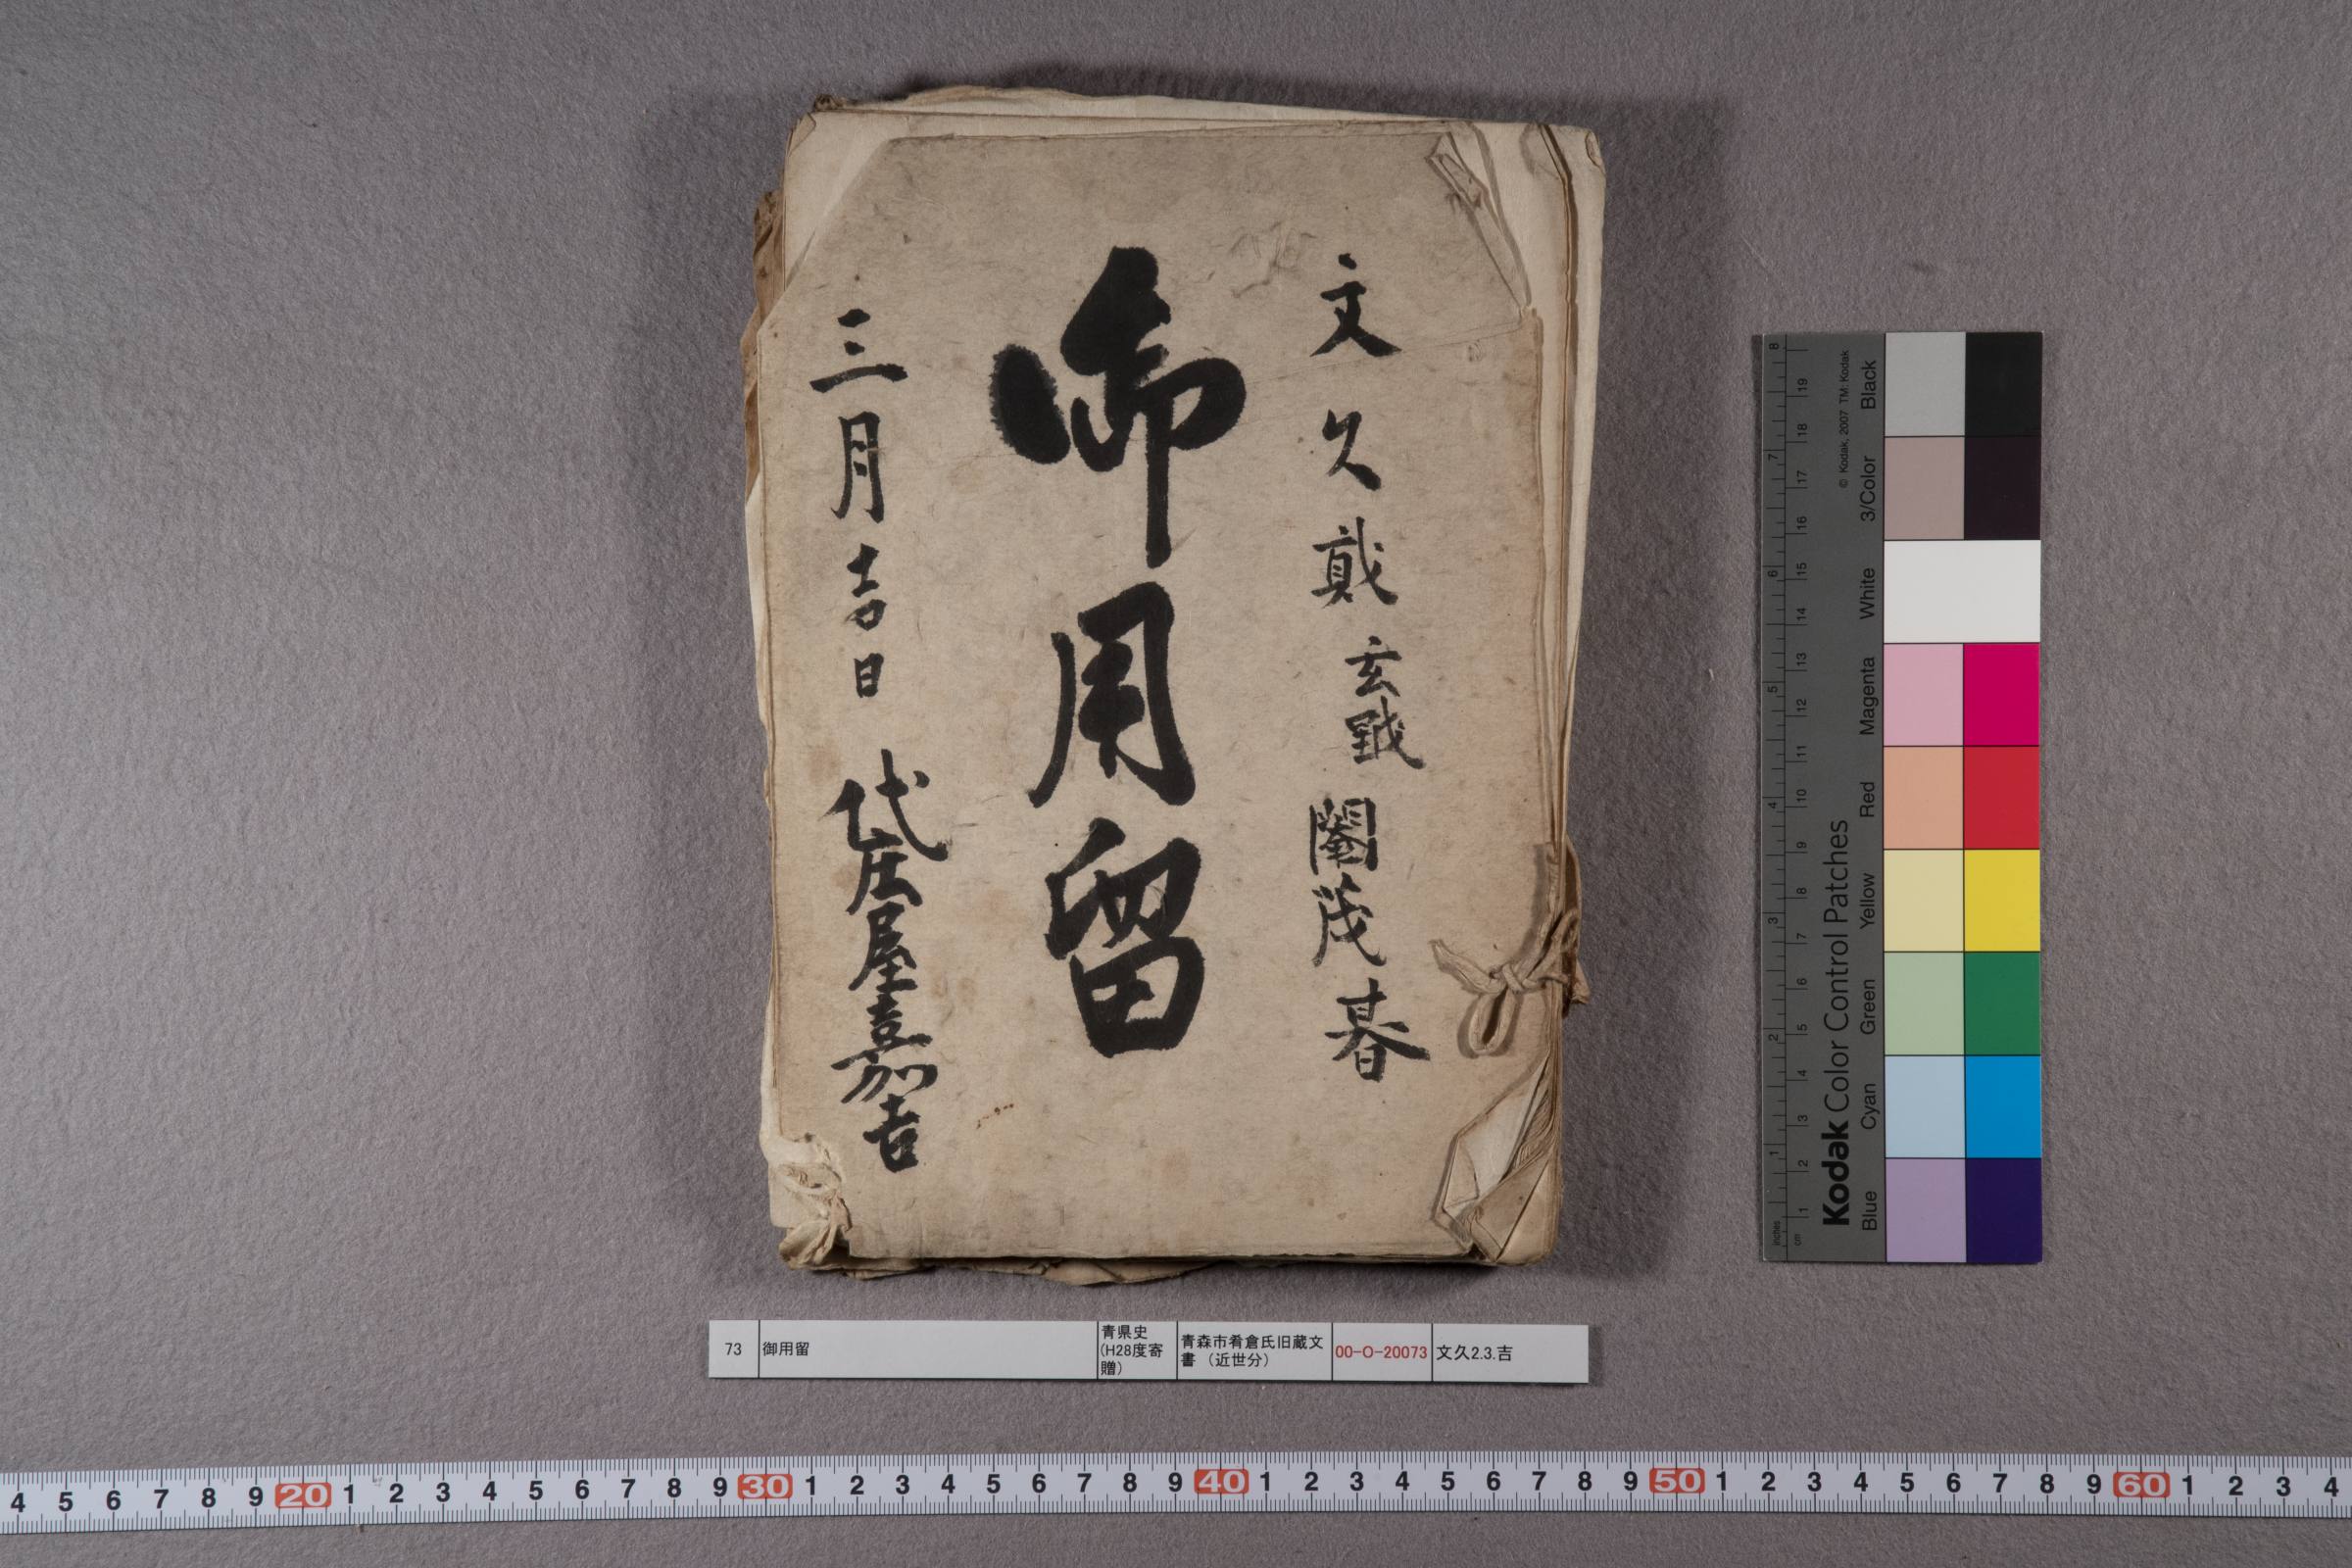 文久貳玄黓閹茂
御用留
三月吉日 代庄屋嘉吉
73 御用留 青県史(H28度寄贈) 青森市肴倉氏旧蔵文書(近世分) 00-O-20073 文久2.3.吉
Kodak Color Control Patches
© Kodak, 2007 TM: Kodak
Blue Cyan Green Yellow Red Magenta White 3/Color Black
inches 1 2 3 4 5 6 7 8
cm 1 2 3 4 5 6 7 8 9 10 11 12 13 14 15 16 17 18 19
4 5 6 7 8 9 20 1 2 3 4 5 6 7 8 9 30 1 2 3 4 5 6 7 8 9 40 1 2 3 4 5 6 7 8 9 50 1 2 3 4 5 6 7 8 9 60 1 2 3 4